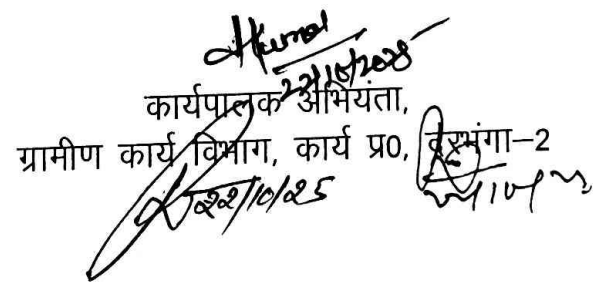 22/10/2025
कार्यपालक अभियंता,
ग्रामीण कार्य विभाग, कार्य प्र0, दरभंगा-2
22/10/25